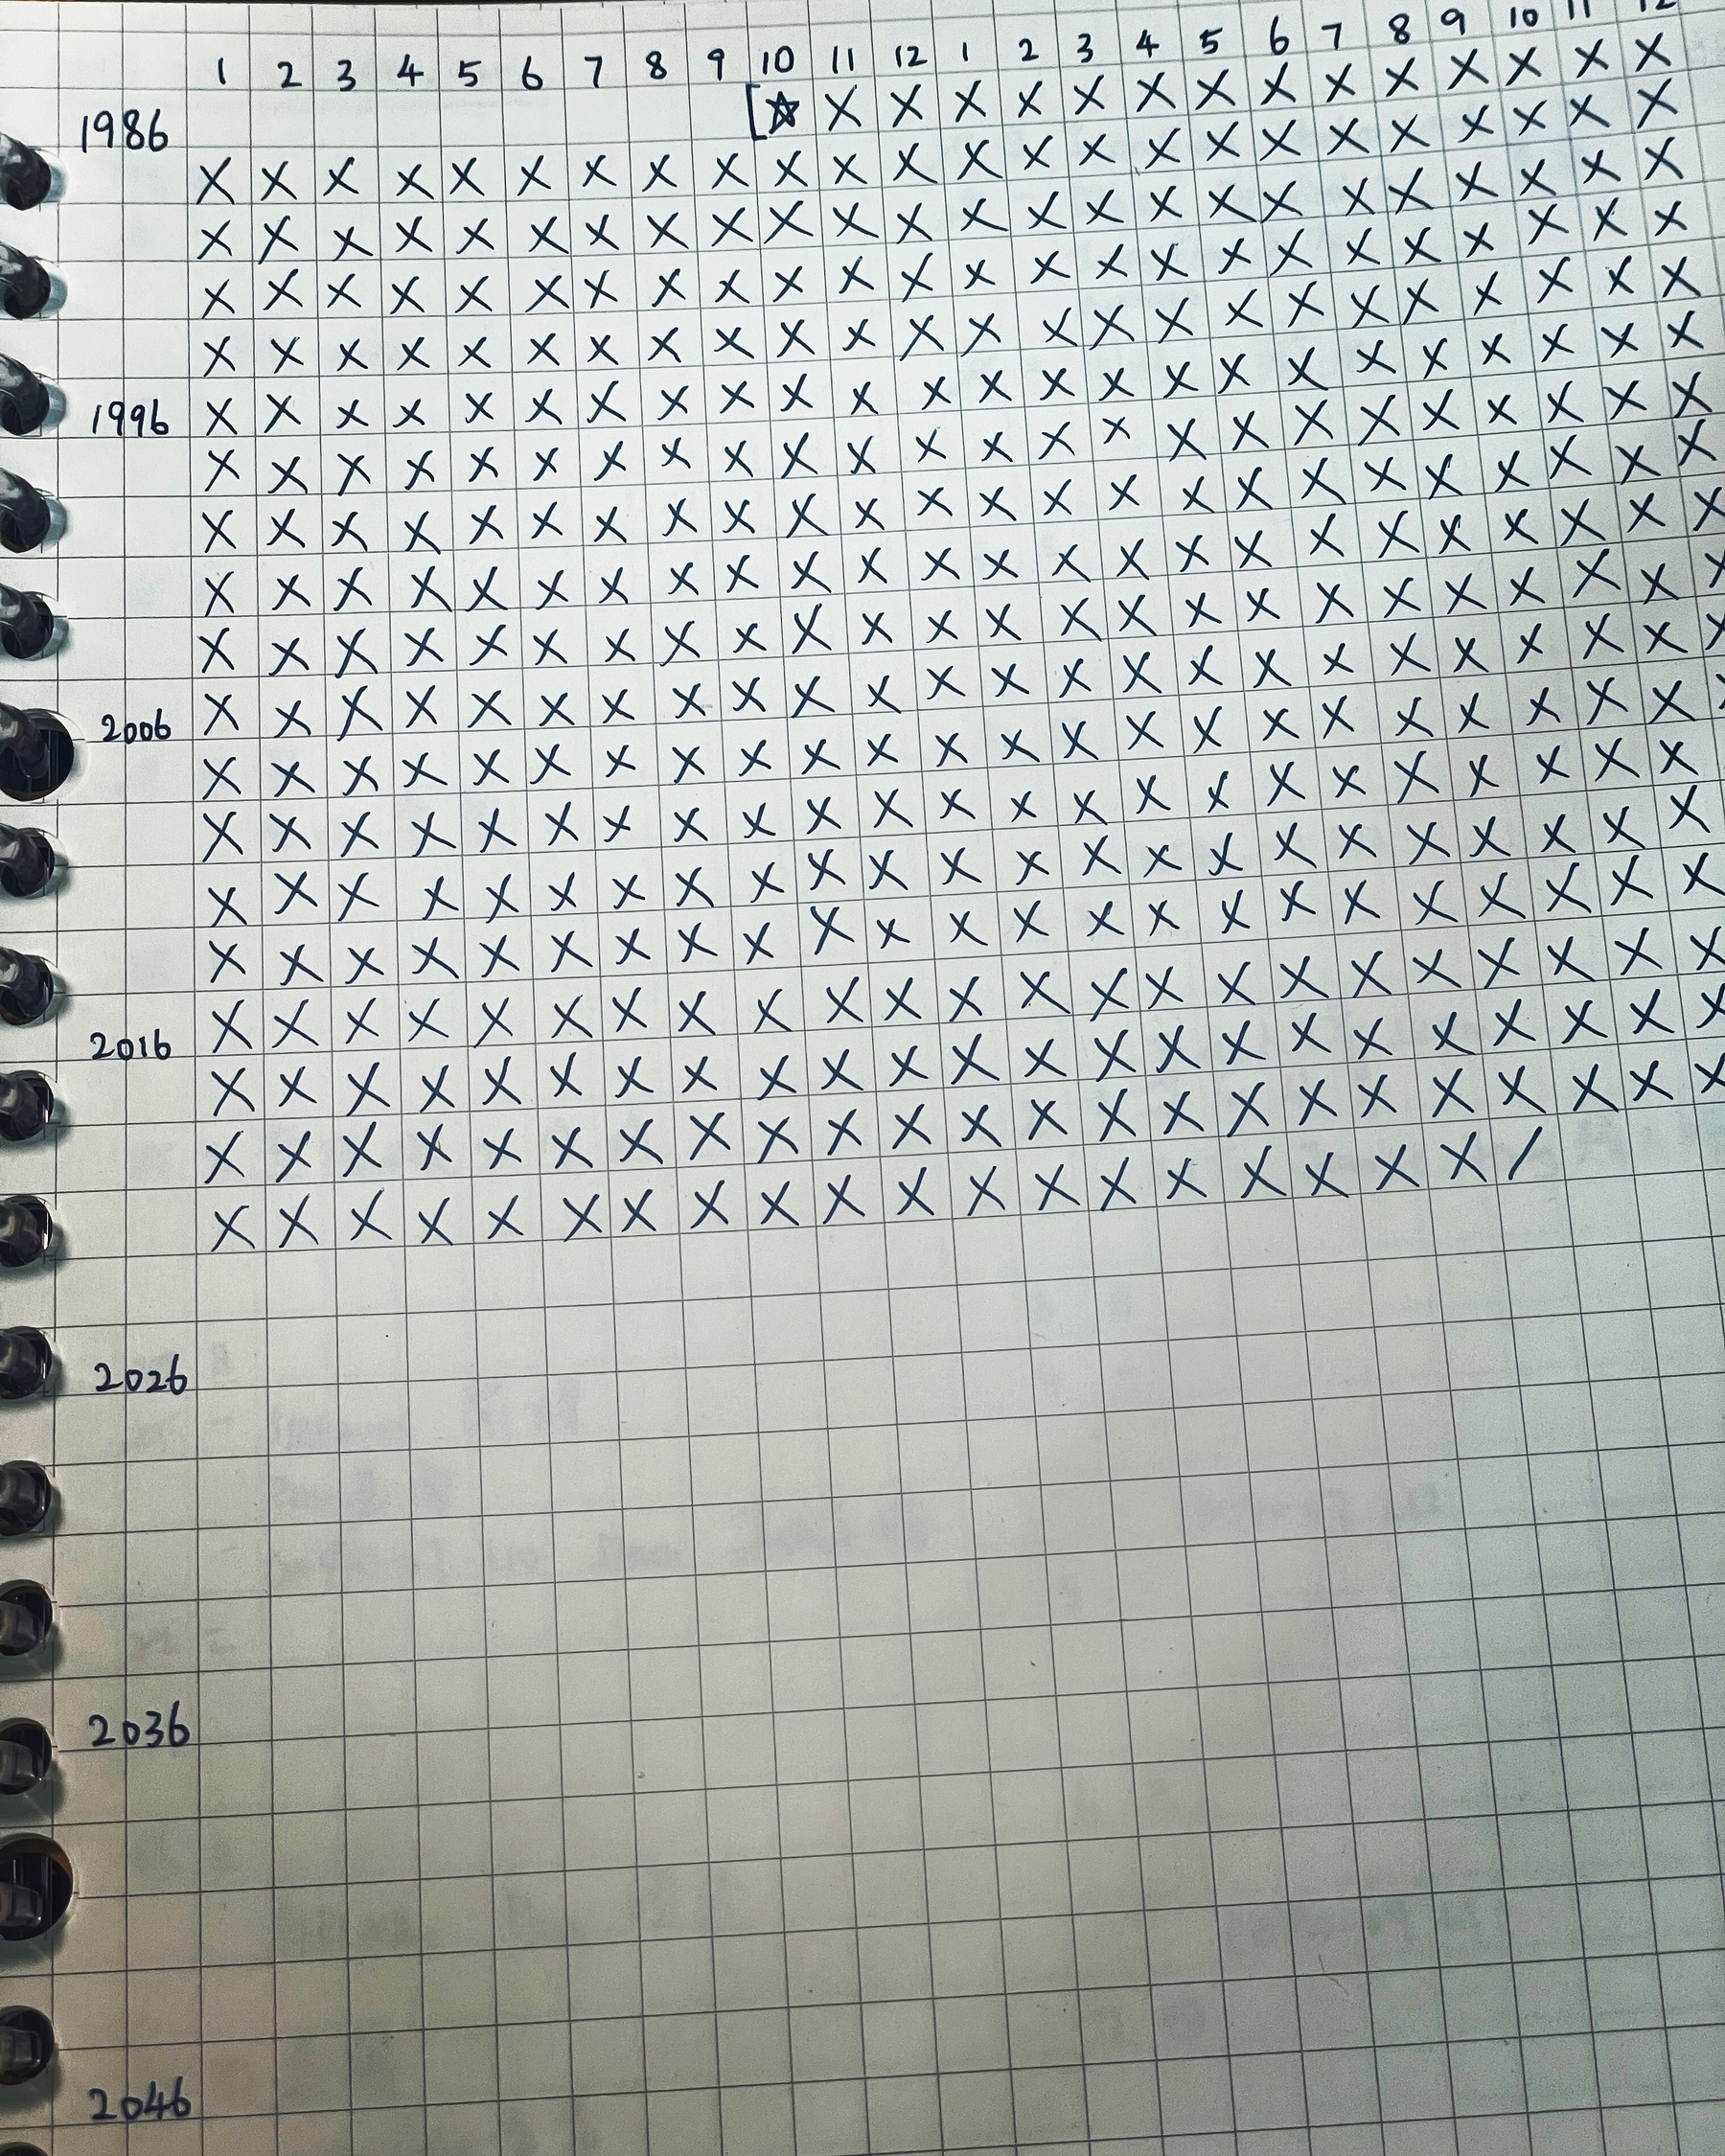 1 2 3 4 5 6 7 8 9 10 11 12 1 2 3 4 5 6 7 8 9 10 11 12
1986
1996
2006
2016
2026
2036
2046